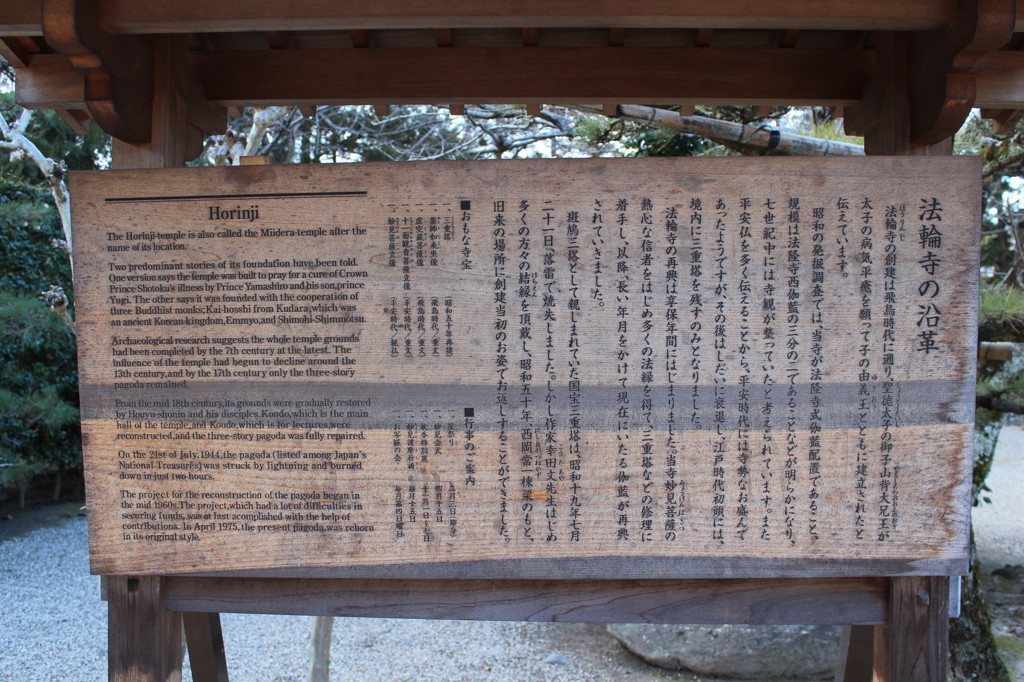 Horinji
The Horinji-temple is also called the Miidera-temple after the
name of its location.
Two predominant stories of its foundation have been told.
One version says the temple was built to pray for a cure of Crown
Prince Shotoku's illness by Prince Yamashiro and his son, prince
Yugi. The other says it was founded with the cooperation of
three Buddhist monks, Kai-hosshi from Kudara, which was
an ancient Korean kingdom, Emmyo, and Shimohi-Shinmotsu.
Archaeological research suggests the whole temple grounds
had been completed by the 7th century at the latest. The
influence of the temple had begun to decline around the
13th century, and by the 17th century only the three-story
pagoda remained.
From the mid 18th century, its grounds were gradually restored
by Hogyu-shonin and his disciples. Kondo, which is the main
hall of the temple, and Koudo, which is for lectures, were
reconstructed, and the three-story pagoda was fully repaired.
On the 21st of July, 1944, the pagoda (listed among Japan's
National Treasures) was struck by lightning and burned
down in just two-hours.
The project for the reconstruction of the pagoda began in
the mid 1960s. The project, which had a lot of difficulties in
securing funds, was at last acomplished with the help of
contributions. In April 1975, the present pagoda, was reborn
in its original style.
法輪寺の沿革
法輪寺の創建は飛鳥時代に遡り、聖徳太子の御子山背大兄王が
太子の病気平癒を願って子の由義王とともに建立されたと
伝えています。
昭和の発掘調査では、当寺が法隆寺式伽藍配置であること、
規模は法隆寺西伽藍の三分の二であることなどが明らかになり、
七世紀中には寺観が整っていたと考えられています。また
平安仏を多く伝えることから、平安時代には寺勢なお盛んで
あったようですが、その後はしだいに衰退し、江戸時代初頭には、
境内に三重塔を残すのみとなりました。
法輪寺の再興は享保年間にはじまりました。当寺妙見菩薩の
熱心な信者をはじめ多くの法縁を得て、三重塔などの修理に
着手し、以降、長い年月をかけて現在にいたる伽藍が再興
されていきました。
斑鳩三塔として親しまれていた国宝三重塔は、昭和十九年七月
二十一日、落雷で焼失しました。しかし作家幸田文先生はじめ
多くの方々の結縁を頂戴し、昭和五十年、西岡常一棟梁のもと、
旧来の場所に創建当初のお姿でお返しすることができました。
■おもな寺宝
一、三重塔 （昭和五十年再建）
一、薬師如来坐像 （飛鳥時代／重文）
一、虚空蔵菩薩像 （飛鳥時代／重文）
一、十一面観音菩薩立像 （平安時代／重文）
一、妙見菩薩立像 （平安時代／秘仏）
■行事のご案内
一、星祭り 二月三日（節分）
一、妙見会式 四月十五日
一、秋季特別展 十一月一日〜